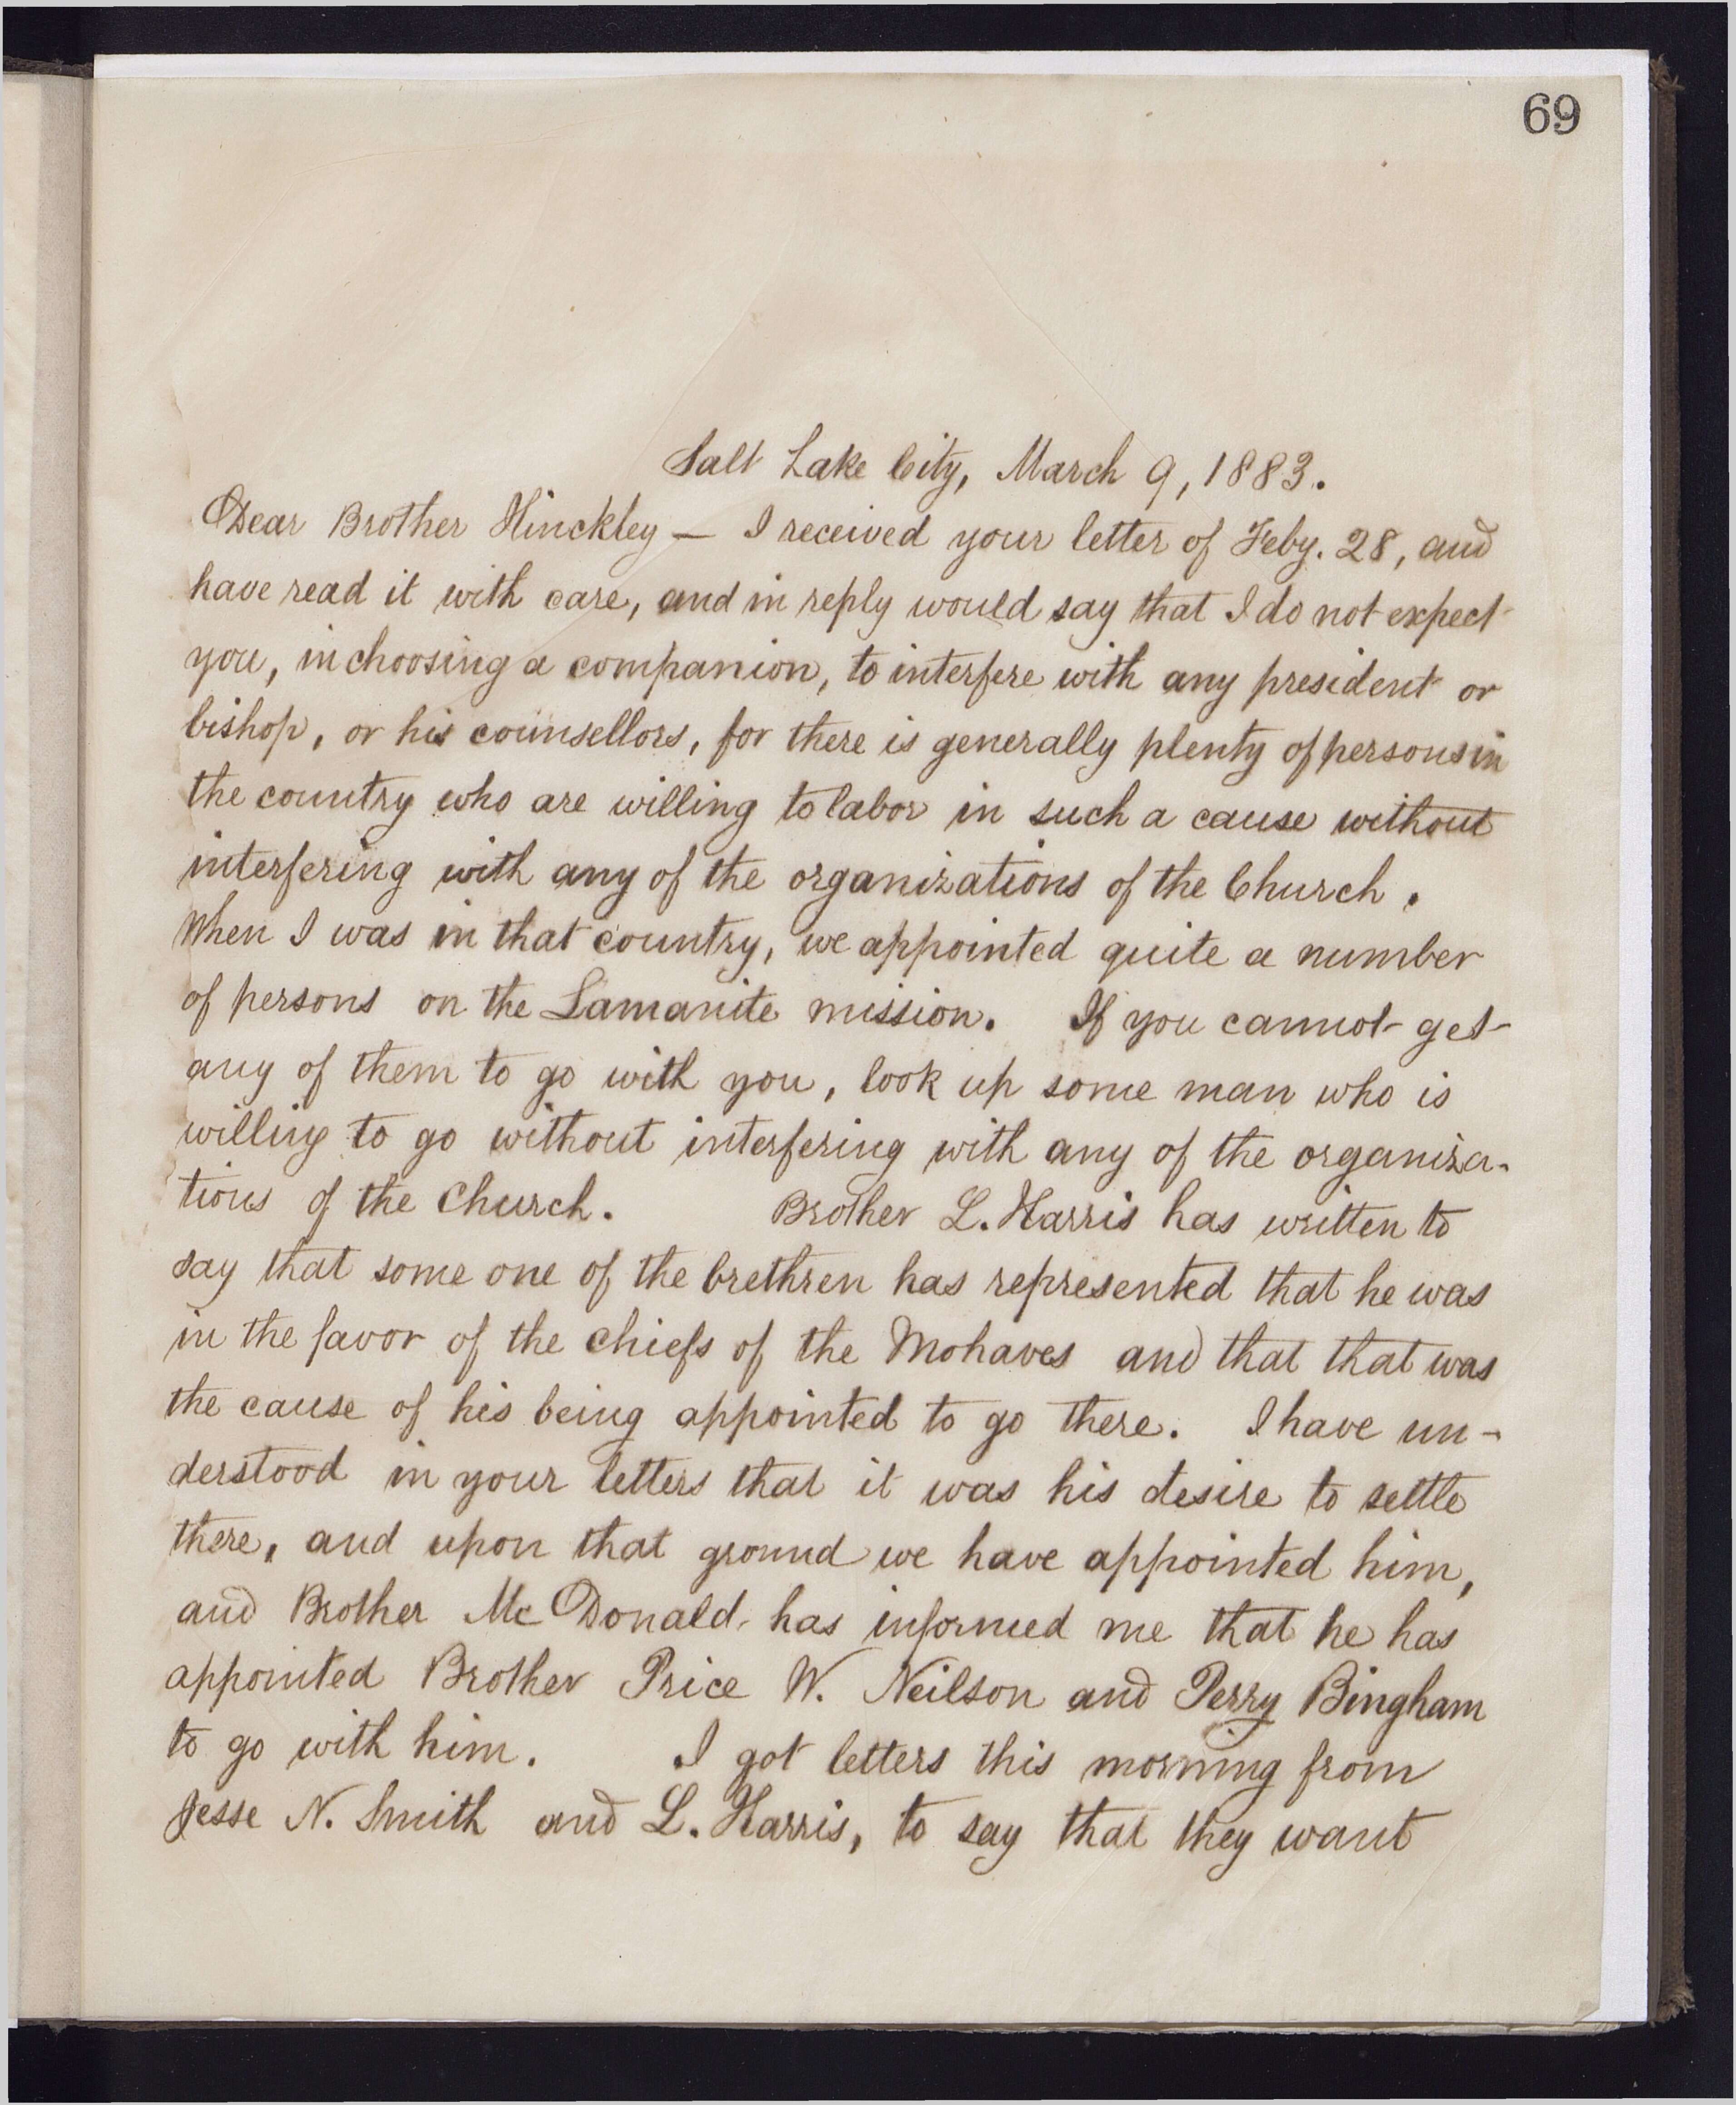 69
Salt Lake City, March 9, 1883.
Dear Brother Hinckley — I received your letter of Feby. 28, and
have read it with care, and in reply would say that I do not expect
you, in choosing a companion, to interfere with any president or
bishop, or his counsellors, for there is generally plenty of persons in
the country who are willing to labor in such a cause without
interfering with any of the organizations of the Church.
When I was in that country, we appointed quite a number
of persons on the Lamanite mission. If you cannot get
any of them to go with you, look up some man who is
willing to go without interfering with any of the organiza-
tions of the Church. Brother L. Harris has written to
say that some one of the brethren has represented that he was
in the favor of the chiefs of the Mohaves and that that was
the cause of his being appointed to go there. I have un-
derstood in your letters that it was his desire to settle
there, and upon that ground we have appointed him,
and Brother McDonald has informed me that he has
appointed Brother Price W. Neilson and Perry Bingham
to go with him. I got letters this morning from
Jesse N. Smith and L. Harris, to say that they want